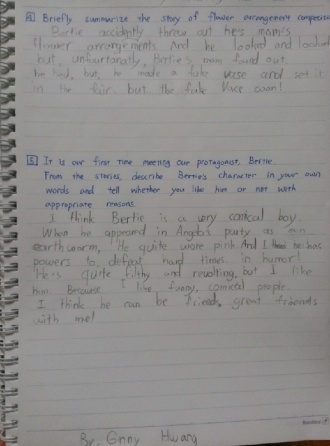 4. Briefly summarize the story of flower arrangement competition
Bertie accidently threw out he's mom's
flower arrangements. And he looked and looked
but, unfortunatly, Bertie's mom found out.
he lied, but, he made a fake vase and set it
in the fair. but the fake Vace won!
5. It is our first time meeting our protagonist, Bertie.
From the stories, describe Bertie's character in your own
words and tell whether you like him or not with
appropriate reasons.
I think Bertie is a very comical boy.
When he appeared in Angela's party as an
earthworm, He quite wore pink. And I
powers to defeat hard times in humor!
He's quite filthy and revolting, but I like
him. Because I like funny, comical people.
I think he can be friends, great friends
with me!
By. Hwang